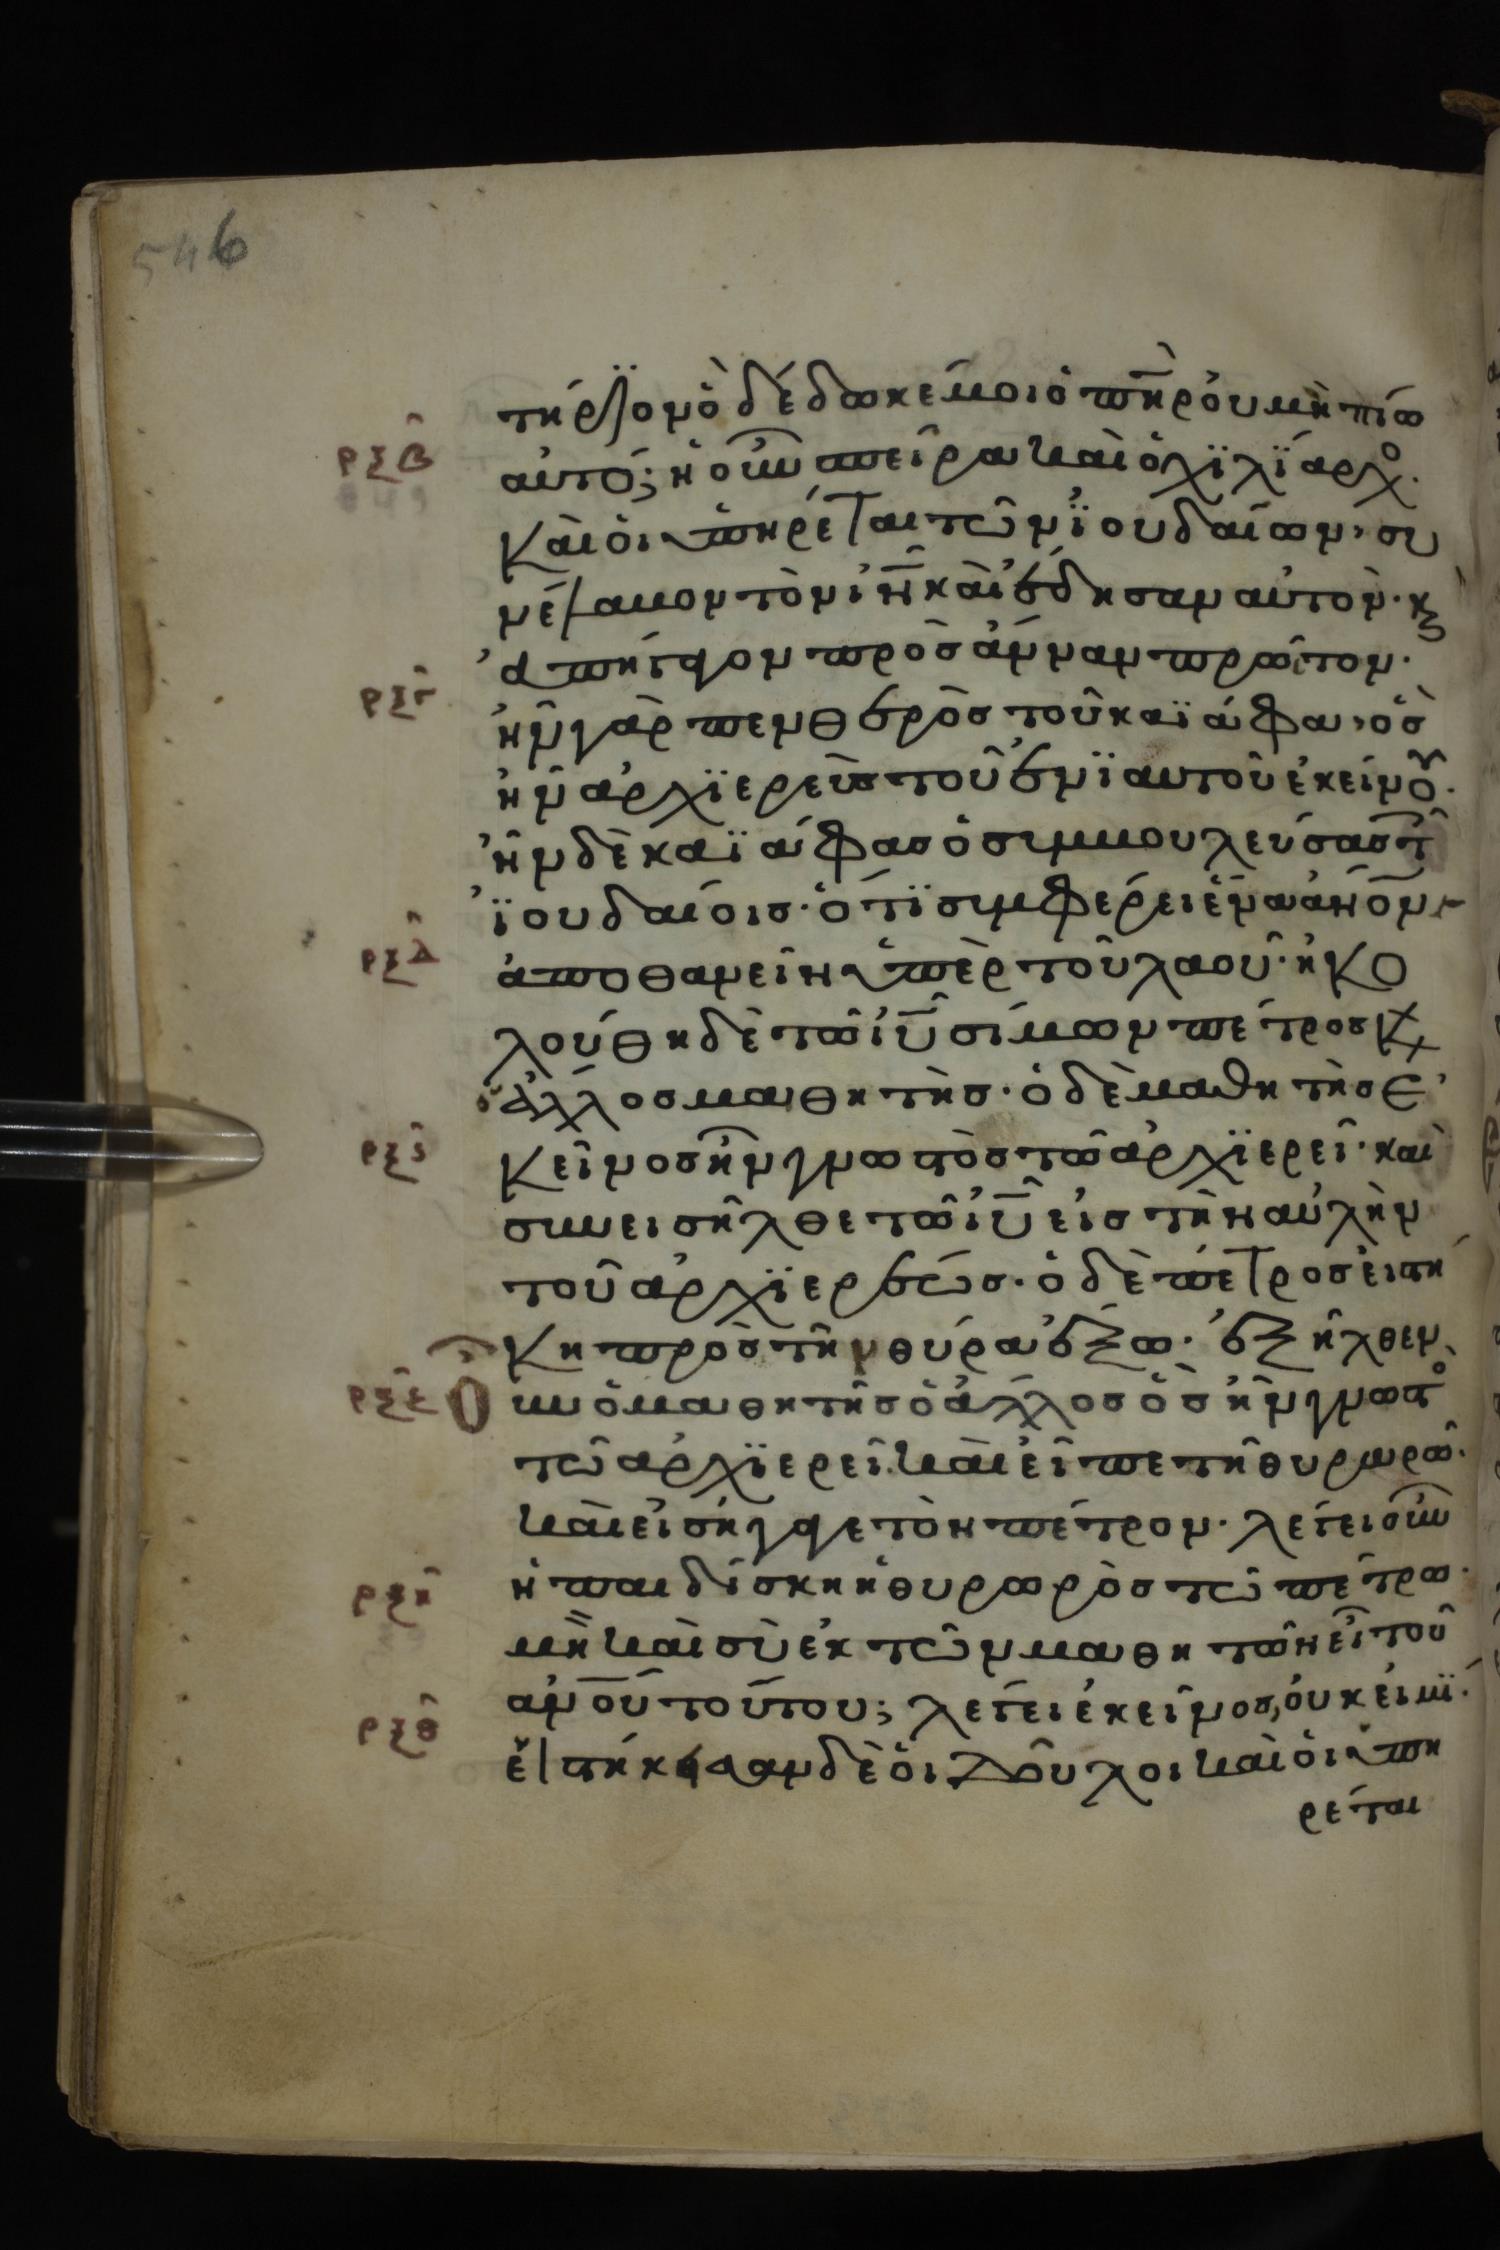 546
τήριον ὃ δέδωκέ μοι ὁ πη̅ρ οὐ μὴ πίω
ρξβ αὐτό; ἡ οὖν σπεῖρα καὶ ὁ χϊλϊαρχο.
καὶ οἱ ὑπηρέται τῶν ϊουδαίων, συ
νέλαβον τὸν ι̅ν̅ καὶ ἔδησαν αὐτὸν· κ
ἀπήγαγον πρὸς ἄνναν πρῶτον·
ρξγ ἦν γὰρ πενθερὸς τοῦ καϊάφα, ὃς
ἦν ἀρχϊερεὺς τοῦ ἐνϊαυτοῦ ἐκείνου·
ἦν δὲ καϊάφας ὁ συμβουλεύσας τ
ϊουδαίοις· ὅτϊ συμφέρει ἕνα α̅ν̅ο̅ν
ρξδ ἀποθανεῖν ὑπὲρ τοῦ λαοῦ· ἠκο
λούθη δὲ τῶ ι̅υ̅ σίμων πέτρος κ
ὁ ἄλλος μαθητὴς· ὁ δὲ μαθητὴς ἐ
ρξς κεῖνος ἦν γνωστὸς τῶ ἀρχϊερεῖ· καὶ
συνεισῆλθε τῶ ι̅υ̅ εἰς τὴν αὐλὴν
τοῦ ἀρχϊερέως· ὁ δὲ πέτρος εἱστή
κη πρὸς τὴν θύρα ἔξω· ἐξῆλθεν
ρξε οὖν ὁ μαθητὴς ὁ ἄλλος ὃς ἦν γνωστο
τῶ ἀρχϊερεῖ. καὶ εἶπε τῆ θυρωρῶ·
καὶ εἰσήγαγε τὸν πέτρον· λέγει οὖν
ρξη ἡ παιδίσκη ἡ θυρωρὸς τῶ πέτρω·
μὴ καὶ σὺ ἐκ τῶν μαθητῶν εἶ τοῦ
α̅ν̅ο̅υ̅ τούτου; λέγει ἐκεῖνος, οὐκ εἰμϊ·
ρξθ εἱστήκεσαν δὲ οἱ δοῦλοι καὶ οἱ ὑπη
ρέται